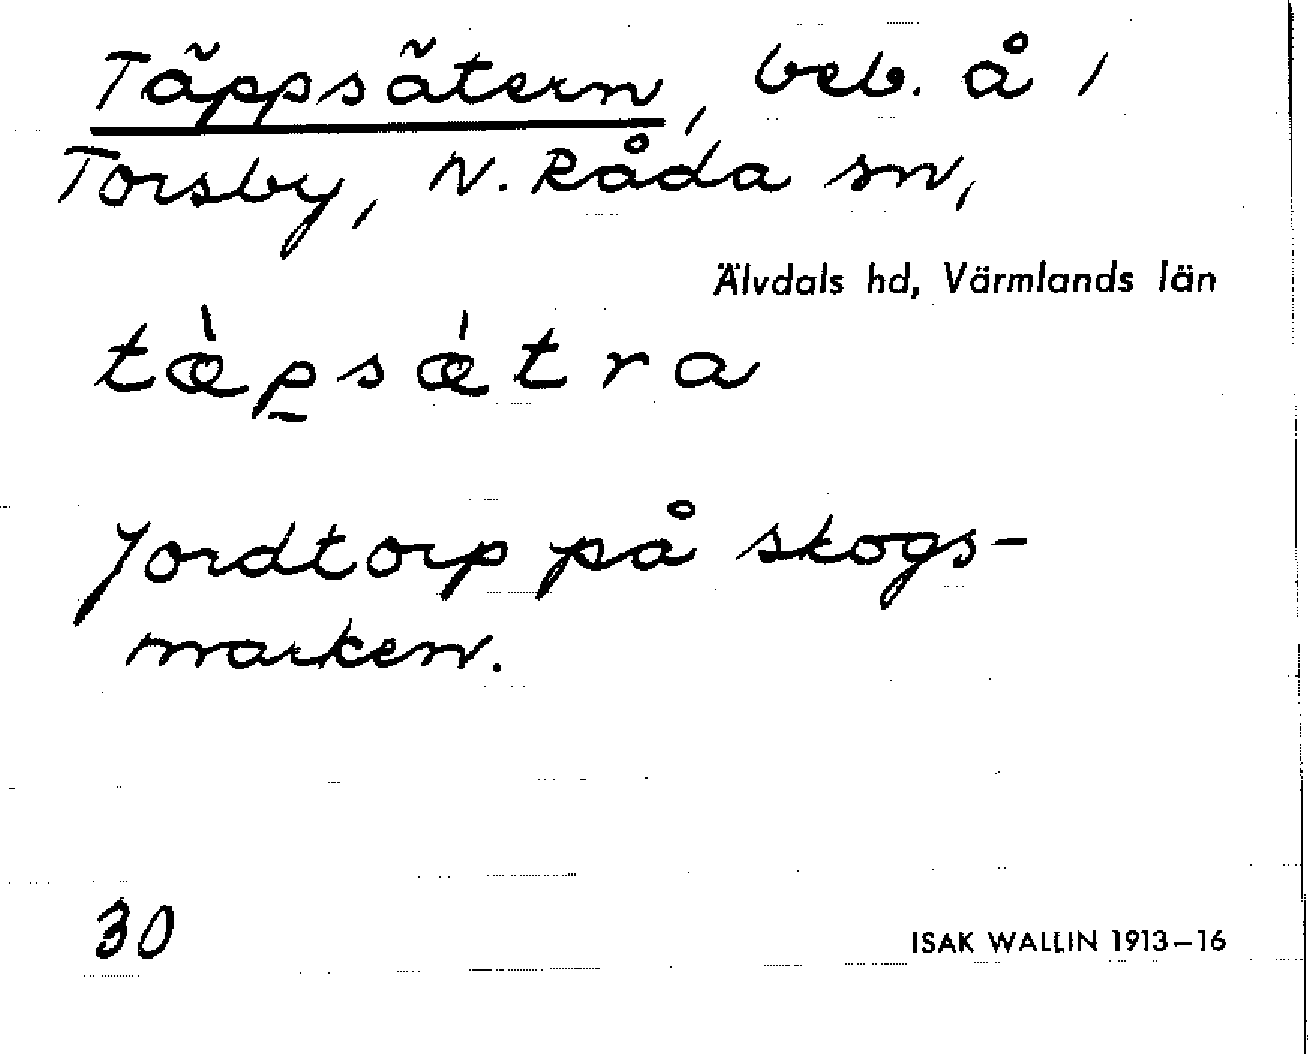 Täppsätern, beb. å 1
Torsby, N. Råda sn,
Älvdals hd, Värmlands län
tæ̀p̠sǽtra
Jordtorp på skogs-
marken.
30
ISAK WALLIN 1913–16